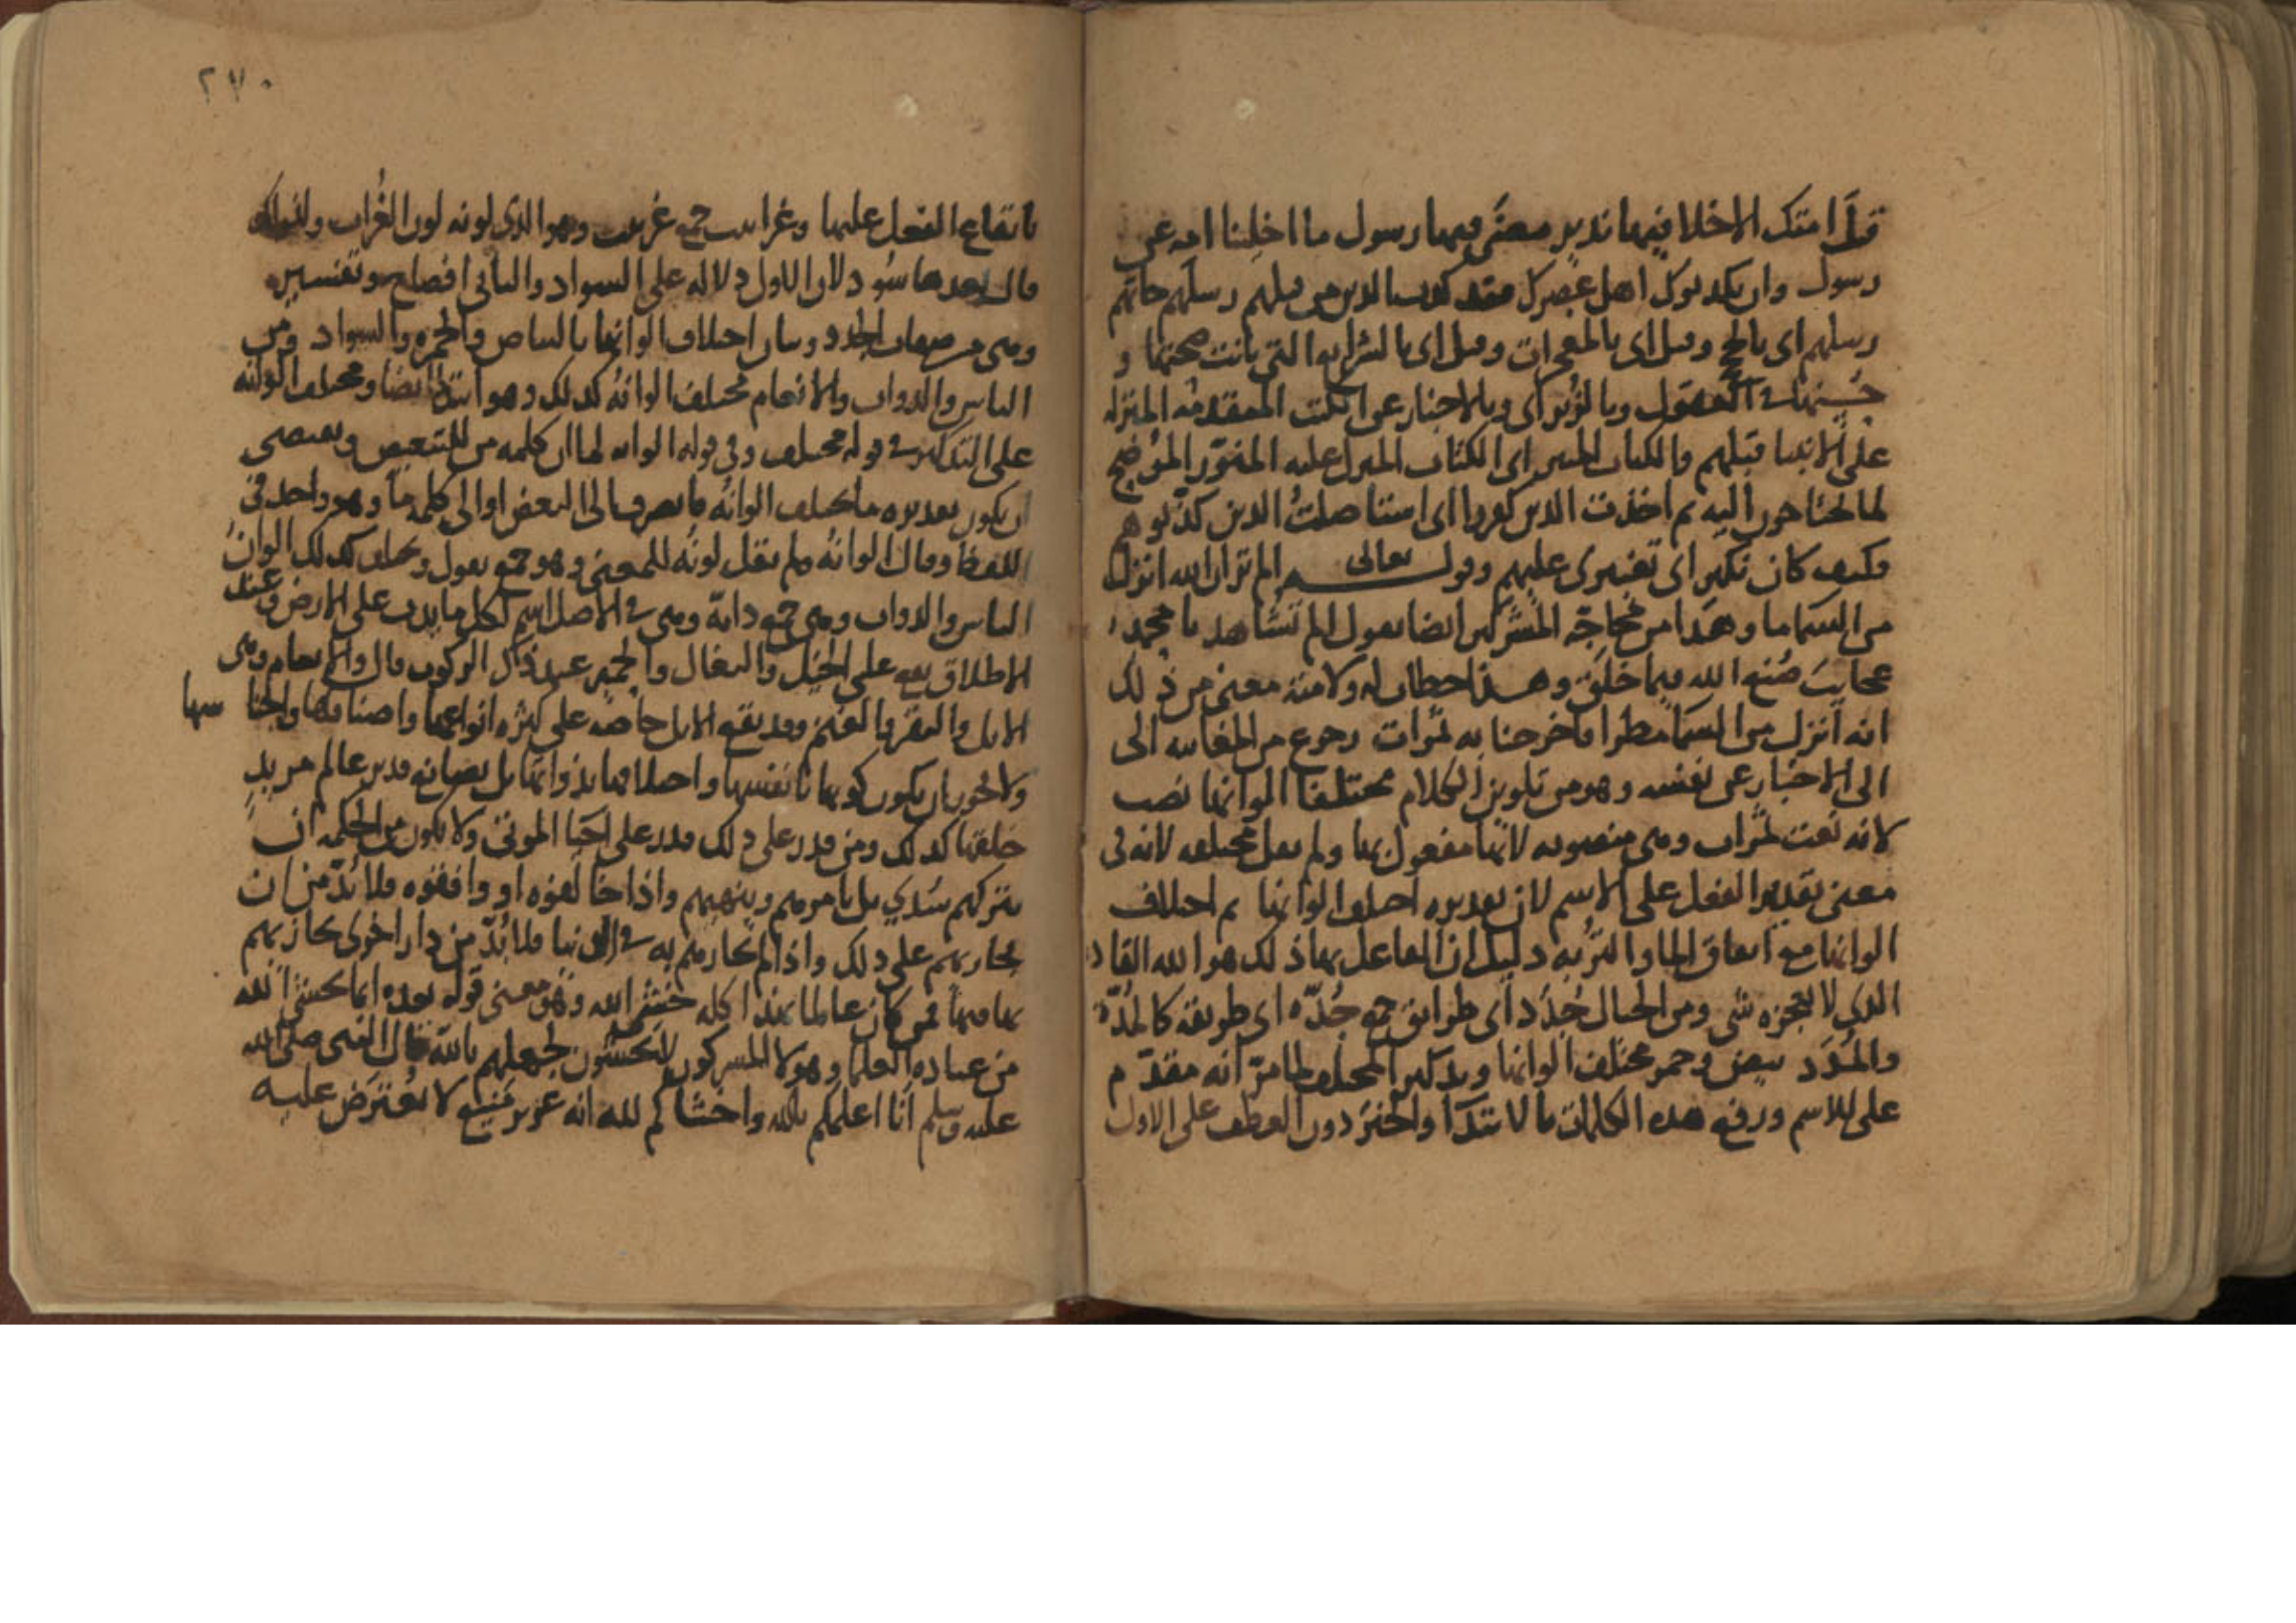 قبل امتك الا خلا فيها نذير مضى فيها رسول ما اخلينا امه عن
رسول وان يكذبوك اهل عصرك فقد كذب الذين من قبلهم رسلهم جاتهم
رسلهم اى بالحجج وقيل اى بالمعجزات وقيل اى بالشرايع التي بانت صحتها و
حسنها في العقول وبالزبر اى وبالاخبار عن الكتب المتقدمه المنزله
على الانبيا قبلهم والكتاب المنير اى الكتاب المنزل عليه المنور الموضح
لما يحتاجون اليه ثم اخذت الذين كفروا اى استاصلت الذين كذبوهم
فكيف كان نكير اى تغييرى عليهم وقوله تعالى الم تر ان الله انزل
من السما ما وهذا من محاجة المشركين ايضا يقول الم تشاهد يا محمد
عجايب صنع الله فيما خلق وهذا خطاب له ولامته معنى من ذلك
انه انزل من السما مطرا فاخرجنا به ثمرات رجوع من المغايبه الى
الى الاخبار عن نفسه وهو من تلوين الكلام مختلفا الوانها نصب
لانه نعت ثمرات وهى منصوبه لانها مفعول بها ولم يقل مختلفه لانه في
معنى تقديم الفعل على الاسم لان تقديره اختلف الوانها ثم اختلاف
الوانها مع اتفاق الما والتربه دليل ان الفاعل بها ذلك هو الله القادر
الذي لا يعجزه شي ومن الجبال جدد اى طرايق جمع جده اى طريقه كالمده
والمدد بيض وحمر مختلف الوانها وتذكير المختلف لما مر انه مقدم
على الاسم ورفع هذه الكلمات بالابتدا والخبر دون العطف على الاول
٢٧٠
بايقاع الفعل عليها وغرابيب جمع غربيب وهو الذى لونه لون الغراب
قال بعدها سود لان الاول دلاله على السواد والثاني افصاح وتفسير
وهى من صفات الجدد وبيان اختلاف الوانها بالبياض والحمره والسواد ومن
الناس والدواب والانعام مختلف الوانه كذلك وهو ابتدا ايضا ومختلف الوانه
على التذكير في قوله مختلف وفي قوله الوانه لما ان كلمه من للتبعيض ويقتضى
ان يكون تقديره ما يختلف الوانه فانصرف الى البعض او الى كلمه ما وهو واحد في
اللفظ وقال الوانه ولم يقل لونه للمعنى وهو جمع يقول وبخلاف كذلك الوان
الناس والدواب وهى جمع دابة وهى في الاصل اسم لكل ما يدب على الارض وعند
الاطلاق يقع على الخيل والبغال والحمير عند ذكر الركوب قال والانعام وهى
الابل والبقر والغنم وقد يقع الابل خاصه على كثره انواعها واصنافها واجناسها
ولا يجوز ان يكون كونها بانفسها واختلافها بذواتها بل بصانع قدير عالم مريد
خلقها كذلك ومن قدر على ذلك قدر على احيا الموتى ولا يكون من الحكمه ان
يتركهم سدي بل يامرهم وينهيهم واذا خالفوه او وافقوه فلا بد من ان
يجازيهم على ذلك واذا لم يجازهم به في الدنيا فلا بد من دار اخرى يجازيهم
بها فيها فمن كان عالما بهذا كله خشى الله وهو معنى قوله بعده انما يخشى الله
من عباده العلما وهولا المشركون لا يخشون لجهلهم بالله قال النبى صلى الله
عليه وسلم انا اعلمكم بالله واخشاكم لله انه عزيز منيع لا يعترض عليه